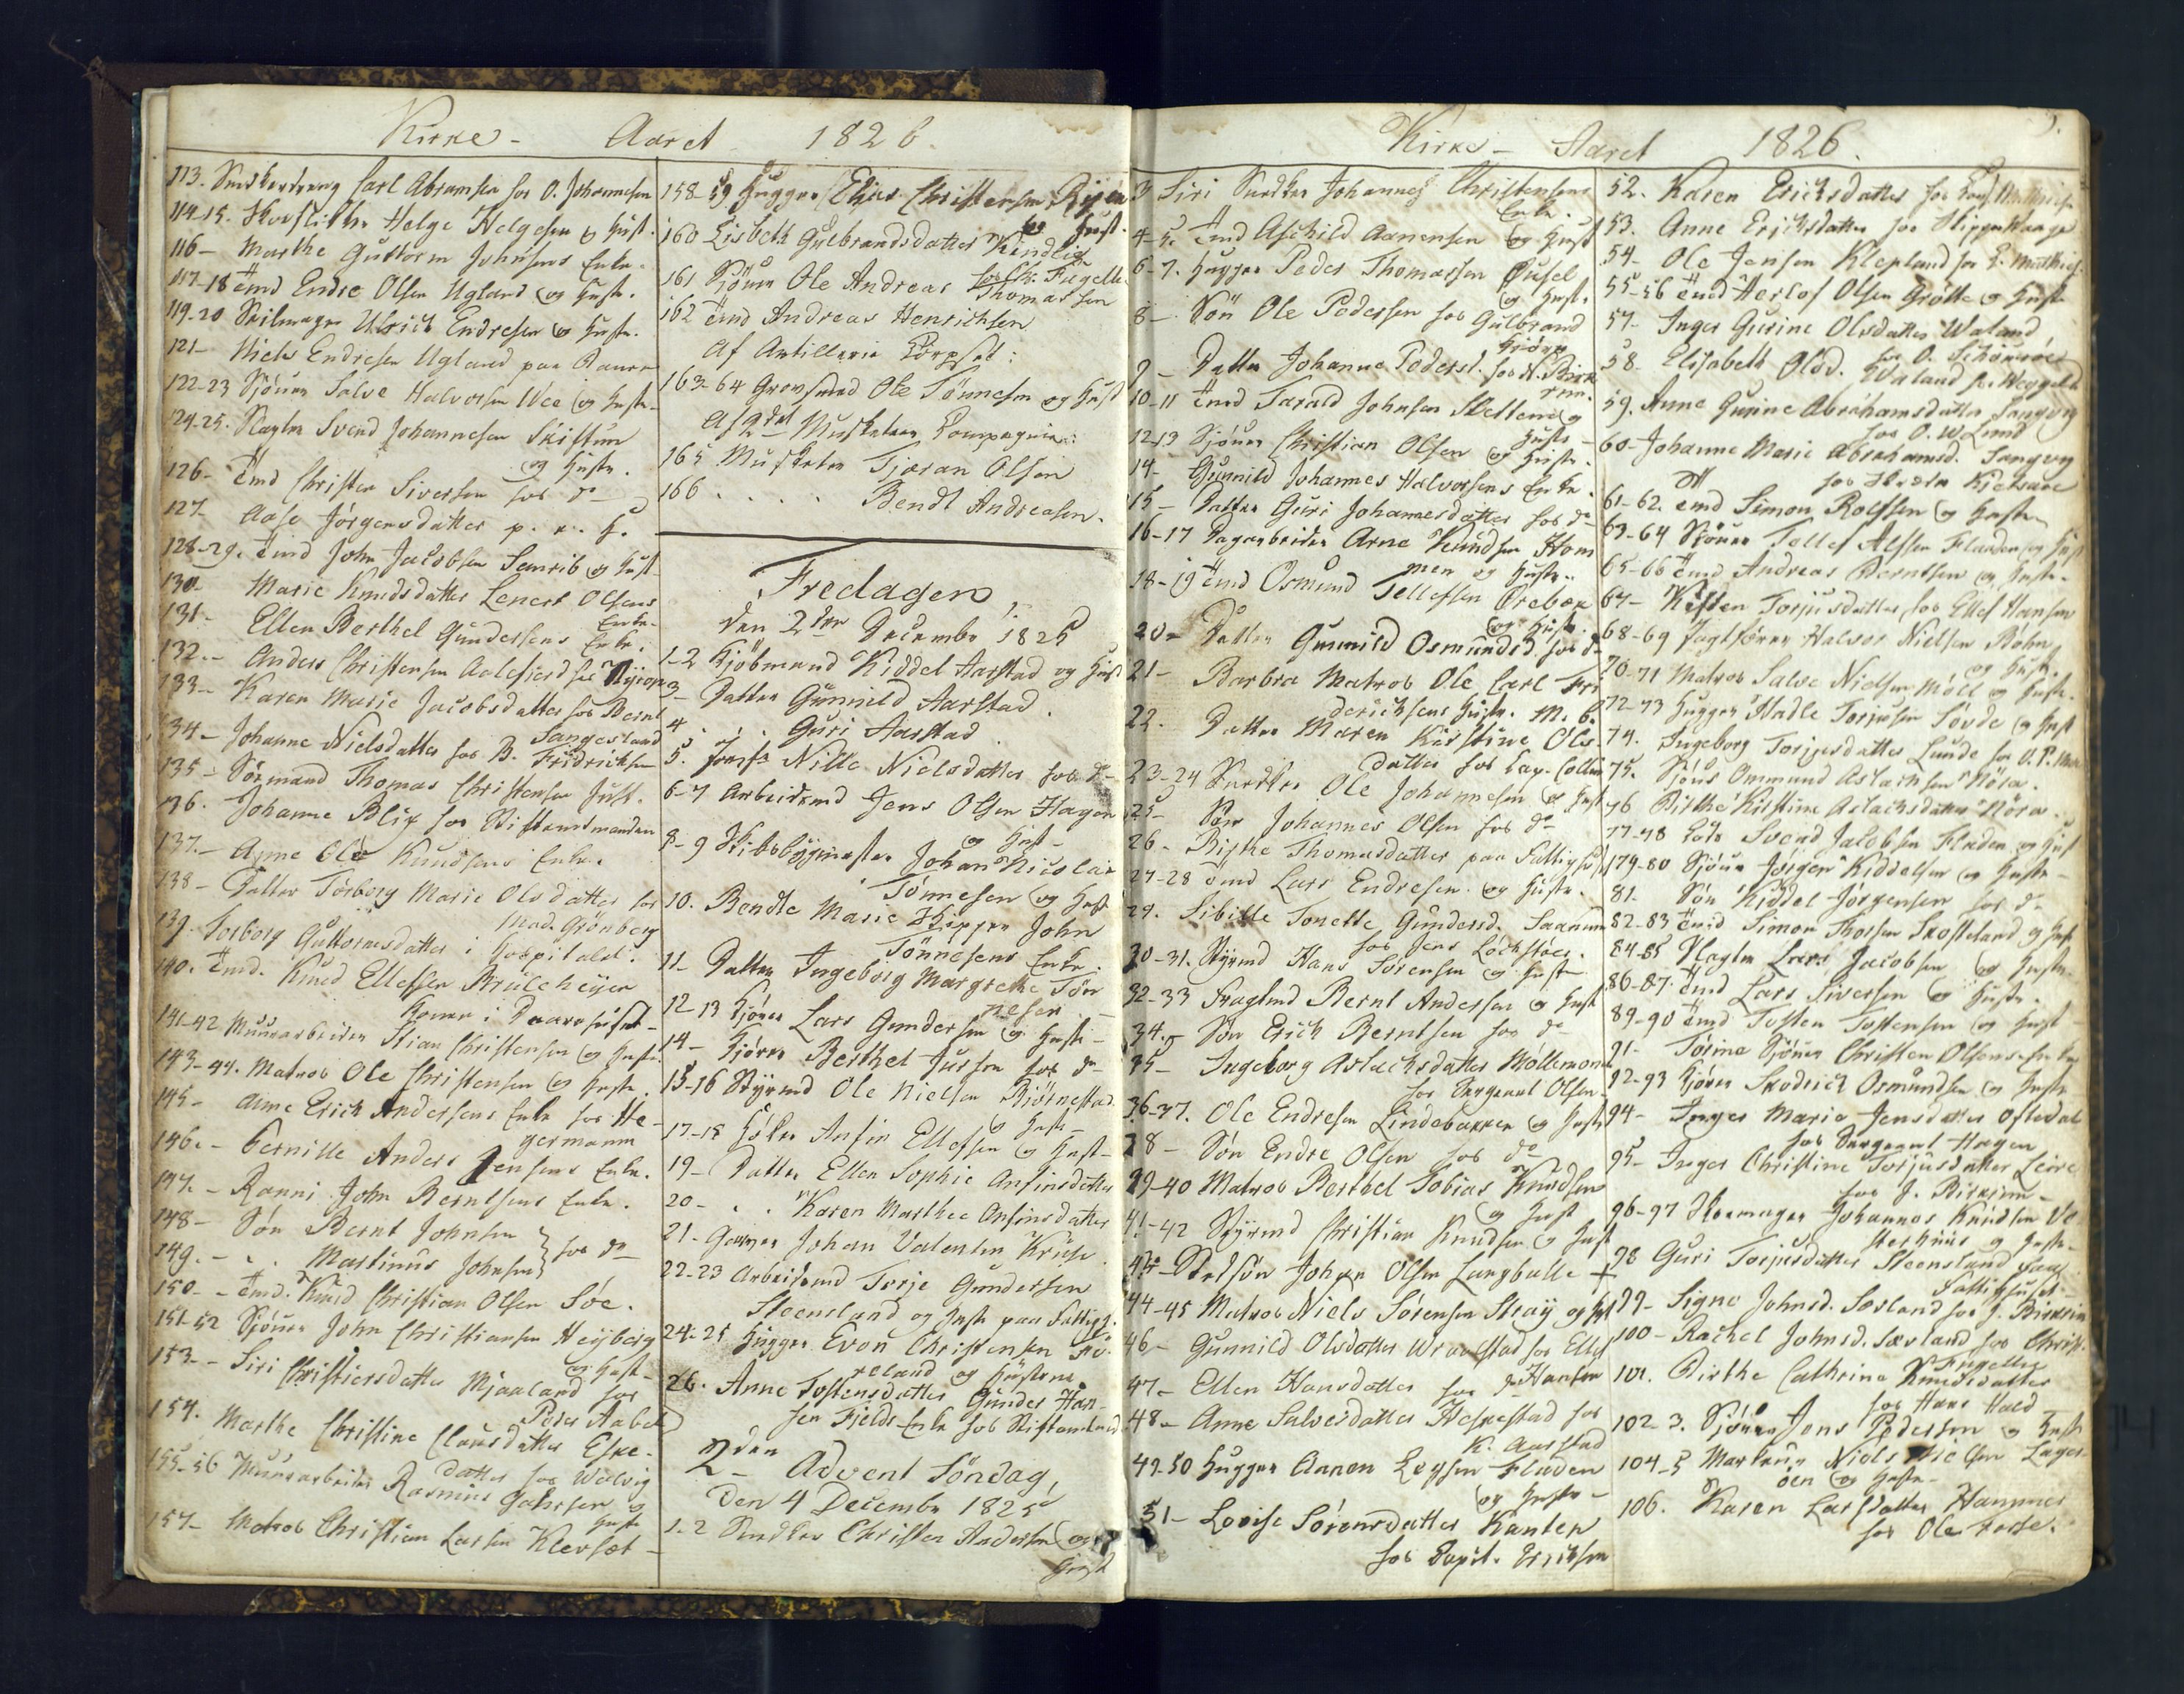 Kirke - Aaret 1826.
113. Snedkerdreng Carl Abramsen hos O. Johannesen
114-15. Skovflikker Helge Helgesen og Hust.
116- Marthe Guttorm Johnsens Enke.
117-18 Tmd Endre Olsen Ugland og Hustr.
119-20 Seilmager Ulrich Endresen og Hustr.
121- Niels Endresen Ugland paa
122-23 Sjöman Salve Halvorsen Wee og Hustr.
124-25. Slagter Svend Johannesen Skiftun
og Hustr.
126- Tmd Christen Siversen hos do
127 Aase Jörgensdatter p. . H.
128-29. Tmd John Jacobsen Senrib og Hust
130- Marie Knudsdatter Lenert Olsens
Enke.
131- Ellen Berthel Gundersens Enke.
132.- Anders Christensen Aalefierd hos
133- Karen Marie Jacobsdatter hos Bernt
Tangesland
134- Johanne Nielsdatter hos B. Fridrichsen
135- Sörmand Thomas Christensen Just.
136. Johanne Blix hos Stiftamtmanden
137.- Anne Ole Knudsens Enke.
138- Datter Torborg Marie Olsdatter hos
Mad. Grönberg
139. Torborg Guttormsdatter i Hospitalet.
140. Tmd. Knud Ellefsen Bruleheyen
Konen i Daarehuset-
141-42 Muurarbeider Stian Christensen og Hustr.
143-44. Matros Ole Christensen og Hustr.
145- Anne Erich Andersens Enke hos He-
germann
146.- Pernille Anders Jensens Enke.
147.- Ranni John Berntsens Enke.
148- Sön Bernt Johnsen } hos do
149.- " Martinus Johnsen
150.- Tmd. Knud Christian Olsen Söe.
151-52 Sjöman John Christiansen Heyberg
og Hust-
153- Siri Christiersdatter Mjaaland hos
Peder Aabel
154. Marthe Christine Clausdatter Eske-
datter hos Walvig
155-56 Muurarbeider Rasmus Gahrsen og
Hustr
157- Matros Christian Larsen Klevset-
158-59 Hugger Elias Christensen Ryen
og Hust.
160 Lisbeth Gulbrandsdatter Kindlie
hos Chr. Fugelle
161 Sjöman Ole Andreas Thomassen
162 Tmd Andreas Henrichsen
Af Artillerie Corpset:
163-64 Grovsmed Ole Tönnesen og Hust
Af 2det Musketeer Compagnie:
165 Musketer Tjæran Olsen
166 . . . . . Bendt Andreasen.
Fredagen,
den 2den December 1825
1-2 Kjöbmand Kiddel Aarstad og Hust
3- Datter Gunnild Aarstad.
4 . . Guri Aarstad
5. Jomfr Nille Nielsdatter hos do-
6-7 Arbeidsmd Jens Olsen Hagen
og Hust-
8-9 Skibsbygmester Johan Nicolai
Tönnesen og Hust
10. Bendte Marie Skipper John
Tönnesens Enke.
11- Datter Ingeborg Margrethe Tön
nesen.
12-13 Kjörer Lars Gundersen og Hustr-
14- Kjörer Berthel Jurssen hos do-
15-16 Styrmd Ole Nielsen Björnestad
og Hustr-
17-18 Höker Ansin Ellefsen og Hust-
19- Datter Ellen Sophie Ansinsdatter
20- . . Karen Marthee Ansinsdatter
21- Garver Johan Valentin Kruse.
22-23 Arbeidsmd Terje Gundersen
Steensland og Hustr paa Fattigh.
24-25 Hugger Even Christensen Fö-
reland og Hustrue
26. Anne Tostensdatter Gunder Han-
sen Fields Enke hos Stiftamtmd
2den Advent Söndag,
den 4 December 1825
1-2 Snedker Christen Andersen og
Hust
Kirke - Aaret 1826.
3 Siri Snedker Johannes Christensens
Enke.
4-5. Tmd Aschild Aanensen og Hust
6-7. Hugger Peder Thomassen Öusel
og Hust.
8- Sön Ole Pedersen hos Gulbrand
9- Datter Johanne Pedersd. hos N. Birke
rem.
10-11 Tmd Tarald Johnsen Slettene og
Hustr-
12-13 Sjöman Christian Olsen og Hustr.
14- Gunnild Johannes Halvorsens Enke.
15- Datter Guri Johannesdatter hos do
16-17 Dagarbeider Arne Knudsen Hom
men og Hustr.
18-19 Tmd Osmund Tellefsen Örebæk
og Hustr.
20- Datter Gunnild Osmundsd. hos do
21- Barbra Matros Ole Carl Fri
derichsens Hustr. M. C.
22. Datter Maren Kirstine Ols-
datter hos Cap. Collin
23-24 Snedker Ole Johannesen og Hust
25- Sön Johannes Olsen hos do
26- Birthe Thomasdatter paa Fattighuset
27-28 Tmd Lars Endresen og Hustr.
29. Sibille Tonette Gundersd. Saanum
hos Jens Lockstöer.
30-31. Styrmd Hans Sörensen og Hust
32-33 Fragtmd Bernt Andersen og Hust
34.- Sön Erich Berntsen hos do
35- Ingeborg Aslachsdatter Möllemoen
hos Sergeant Olsen.
36-37. Ole Endresen Lindebakken og Hustr
38- Sön Endre Olsen hos do
39-40 Matros Berthel Tobias Knudsen
og Hust
41-42 Styrmd Christian Knudsen og Hust
43- Stedsön Johan Olsen Langballe +
44-45 Matros Niels Sörensen Stray og Hust
46- Gunnild Olsdatter Wraalstad hos Ellef
Hansen
47- Ellen Hansdatter hos do
48- Anne Salvesdatter Heskestad hos
K. Aarstad
49-50 Hugger Aanen Leysen Fladen
og Hustr-
51- Lovise Sörensdatter Kanten
hos Capit. Erichsen
52. Karen Erichsdatter hos
53. Anne Erichsdatter hos Skipper Kaage
54- Ole Jensen Klepland hos E. Mathies.
55-56 Tmd Herlof Olsen Grötte og Hustr
57- Inger Gurine Olsdatter Waland
hos O.
58- Elisabeth Olsd. Waland hos
59. Anne Gurine Abrahamsdatter Sangvig
hos O. W. Lund
60- Johanne Marie Abrahamsd. Sangvig
hos
61-62. Tmd Simon Rolfsen og Hustr.
63-64 Sjöman Tellef Alfsen Fladen og Hust
65-66 Tmd Andreas Berntsen og Hustr.
67- Kisten Torjusdatter hos Ellef Hansen
68-69 Jagtförer Halvor Nielsen Bohn
og Hustr.
70-71 Matros Salve Nielsen Möll og Hustr.
72-73 Hugger Andle Torjusen Sövde og Hust
74. Ingeborg Torjusdatter Lunde hos O. P. Moe
75. Sjöm Ommund Aslachsen Höra.
76 Birthe Kirstine Aslachsdatter Höra.
77-78 Lods Svend Jacobsen Fladen og Hust
179-80 Sjöman Jörgen Kiddelsen og Hustr-
81. Sön Kiddel Jörgensen hos do
82-83 Tmd Simon Thorsen Skofteland og Hustr
84-85 Slagter Lars Jacobsen og Hustr.
86-87. Tmd Lars Siversen og Hustr.
89-90 Tmd Tosten Tostensen og Hust
91- Torine Sjöman Christen Olsens Enke
92-93 Kjörer Skodrich Osmundsen og Hustr
94- Inger Marie Jensdatter Oftedal
hos Sergeant Hagen
95- Inger Christine Torjusdatter Leire
hos J. Birkrem-
96-97 Skomager Johannes Knudsen Ve-
sterhuus og Hustr-
98 Guri Torjusdatter Steensland paa
Fattighuset-
99- Signe Johnsd. Sævland hos J. Birkrem
100- Rachel Johnsd. Sævland hos Christ.
Fugelli
101. Birthe Cathrine Knudsdatter
hos Hans Hald
102-3. Sjöman Jens Pedersen og Hustr
104-5 Marten Niels Nielsen Lager-
öen og Hustr-
106. Karen Larsdatter Hammer
hos Ole Fosse.